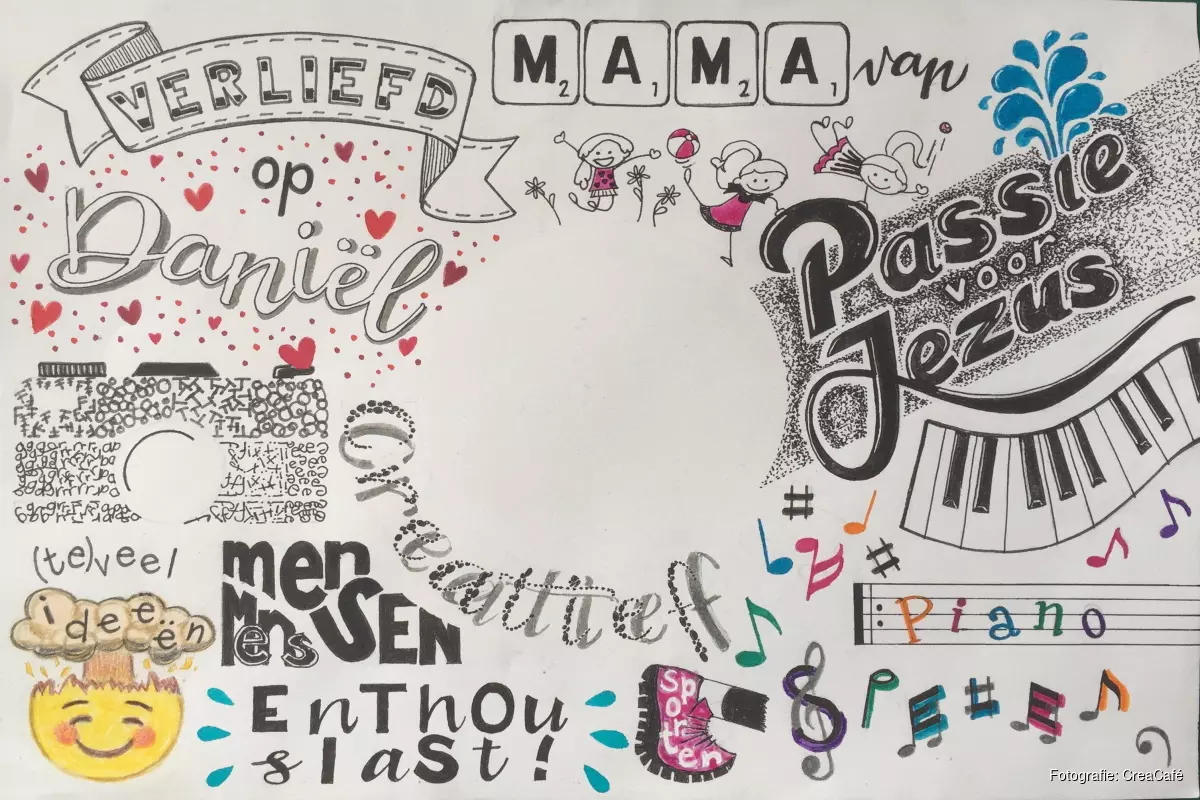 VERLIEFD
op
Daniël
M₂ A₁ M₂ A₁ van
Passie
voor
Jezus
Creatief
(te)veel
ideeën
men
SEN
Mens
MENSEN
ENTHOU
sIaSt!
sporten
Piano
Fotografie: CreaCafé